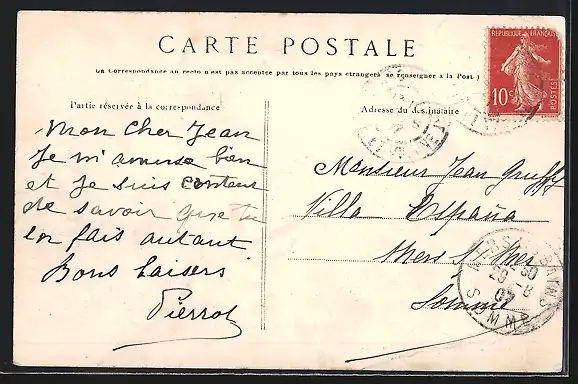 CARTE POSTALE
La Correspondance au recto n'est pas acceptée par tous les pays étrangers se renseigner à la Post )
Partie réservée à la correspondance
Adresse du destinataire
REPUBLIQUE FRANÇAISE
10c
POSTES
Mon cher Jean
Je m'amuse bien
et je suis content
de savoir que tu
en fais autant
Bons baisers
Pierrot
Monsieur Jean
Villa España
Mers s/ Mer
Somme
MERS BAINS
30
29 -8
07
SOMME